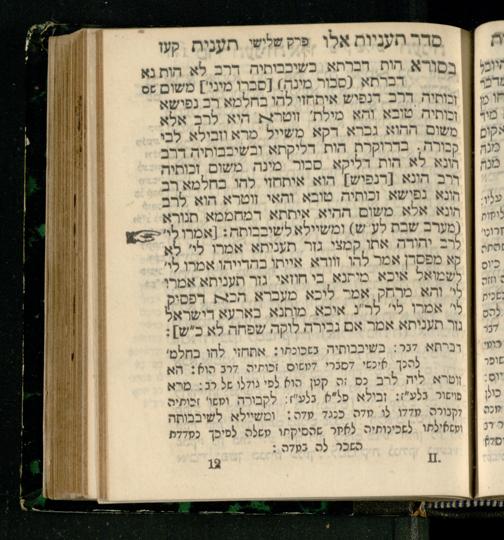 סדר תעניות אלו פרק שלישי תענית קעז
בסורא הות דברתא בשיבבותיה דרב לא הות נא
דברתא (סבור מינה) [סברו מיני'] משום שם
זכותיה דרב דנפיש איתחזי להו בחלמא רב נפישא
זכותיה טובא והא מילת' זוטרא היא לרב אלא
משום ההוא גברא דקא משייל מרא וזבילא לבי
קבורה. בדרוקרת הות דליקתא ובשיבבותיה דרב
הונא לא הות דליקא סבור מינה משום זכותיה
דרב הונא [דנפיש] הוא איתחזי להו בחלמא רב
הונא נפישא זכותיה טובא והאי זוטרא הוא לרב
הונא אלא משום ההיא איתתא דמחממא תנורא
(מערב שבת לע"ש) ומשיילא לשיבבותה: [אמרו לי'
לרב יהודה אתו קמצי גזר תעניתא אמרו לי' לא
קא מפסדן אמר להו זוודא אייתו בהדייהו אמרו לי'
לשמואל איכא מותנא בי חוזאי גזר תעניתא אמרו
לי' והא מרחק אמר ליכא מעברא הכא דפסיק
לי' אמרו לי' לר"נ איכא מותנא בארעא דישראל
גזר תעניתא אמר אם גבירה לוקה שפחה לא כ"ש]:
דברתא דבר: בשיבבותיה בשכונתו: אתחזי להו בחלמ'
להנך אינשי דסברי דמשום זכותיה דרב הוא: הא
זוטרא ליה לרב נס זה קטן הוא לפי גודלו של רב: מרא
פושור בלע"ז: זבילא פל"א בלע"ז: לקבורה ומשו' זכותיה
דקבורה מדדו לו מדה כנגד מדה: ומשיילא לשיבבותה
ומשאילתו לשכינותיה לאחר שהסיקתו משלה לפיכך נמדדת
השכר לה במדה:
12 II.